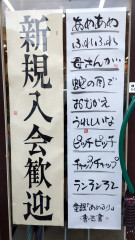 新規入会歓迎
あめあめ
ふれふれ
母さんが
蛇の目で
おむかえ
うれしいな
ピッチピッチ
チャップチャップ
ランランラン
童謡「あめふり」